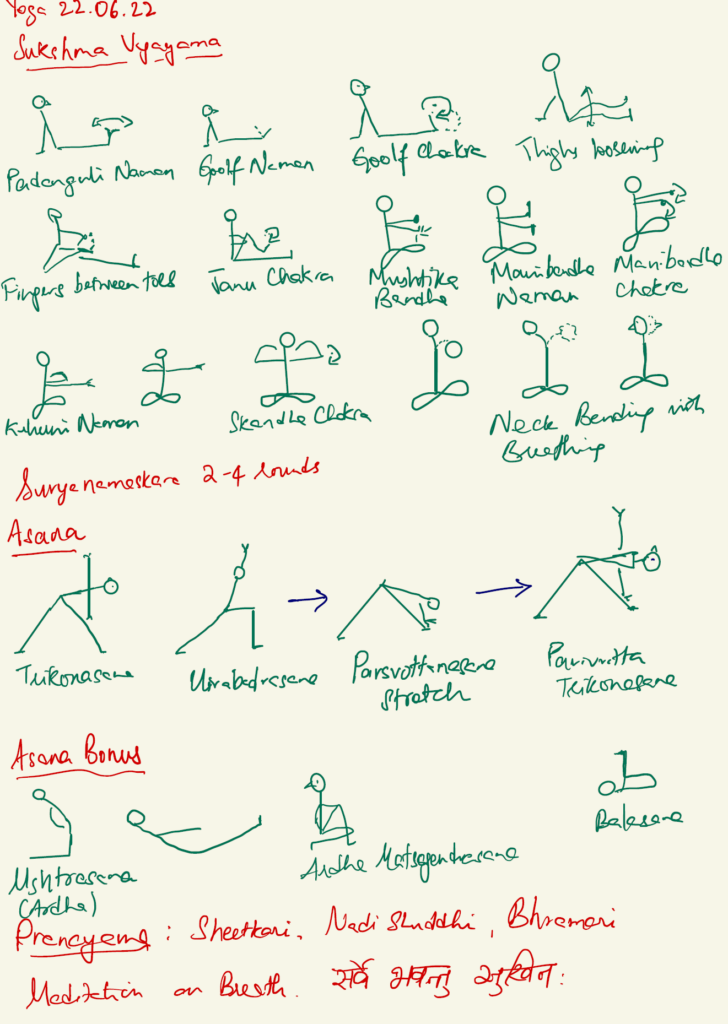 Yoga 22.06.22
Sukshma Vyayama
Padanguli Naman Goolf Naman Goolf Chakra Thighs loosening
Fingers between toes Janu Chakra Mushtika Bandha Manibandha Naman Manibandha Chakra
Kehuni Naman Skandha Chakra Neck Bending with Breathing
Suryanamaskara 2-4 rounds
Asana
Trikonasana Virabadrasana Parsvottanasana Stratch Parivritta Trikonasana
Asana Bonus
Ushtrasana (Ardha) Ardha Matsyendrasana Balasana
Pranayama : Sheetkari, Nadi Shuddhi, Bhramari
Meditation on Breath. सर्वे भवन्तु सुखिन: